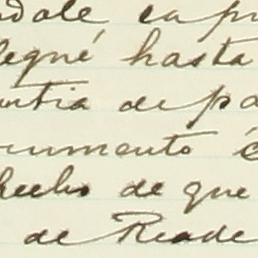 ndole cap
legué hasta
untia de pa
cumento é
hecho de que
de Reade